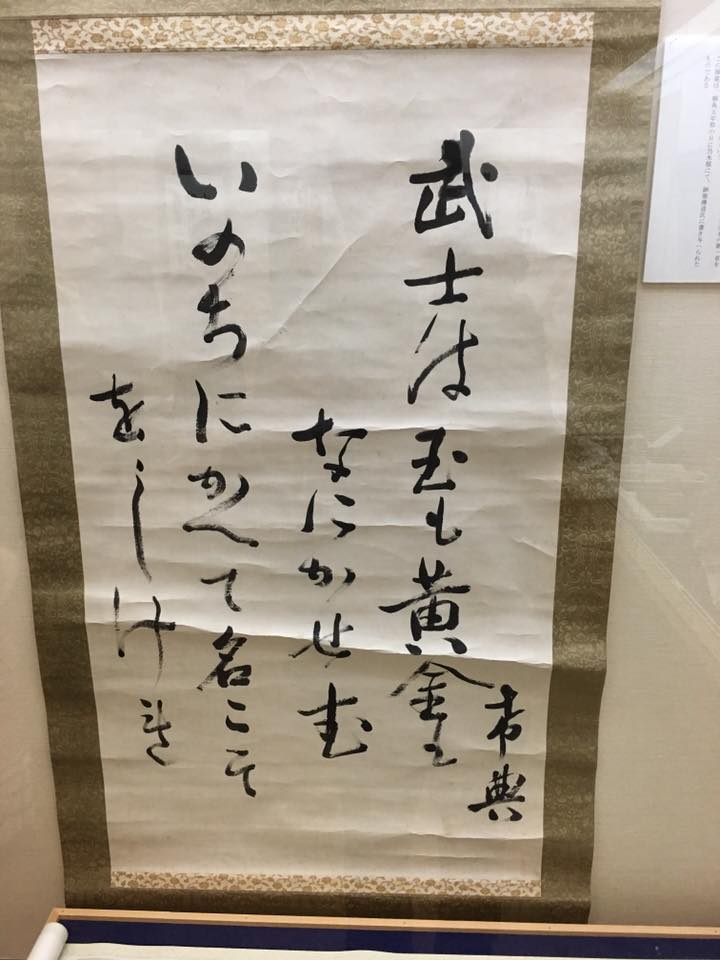 武士は玉も黄金も
なにかせむ
いのちにかへて名こそ
をしけれ
希典